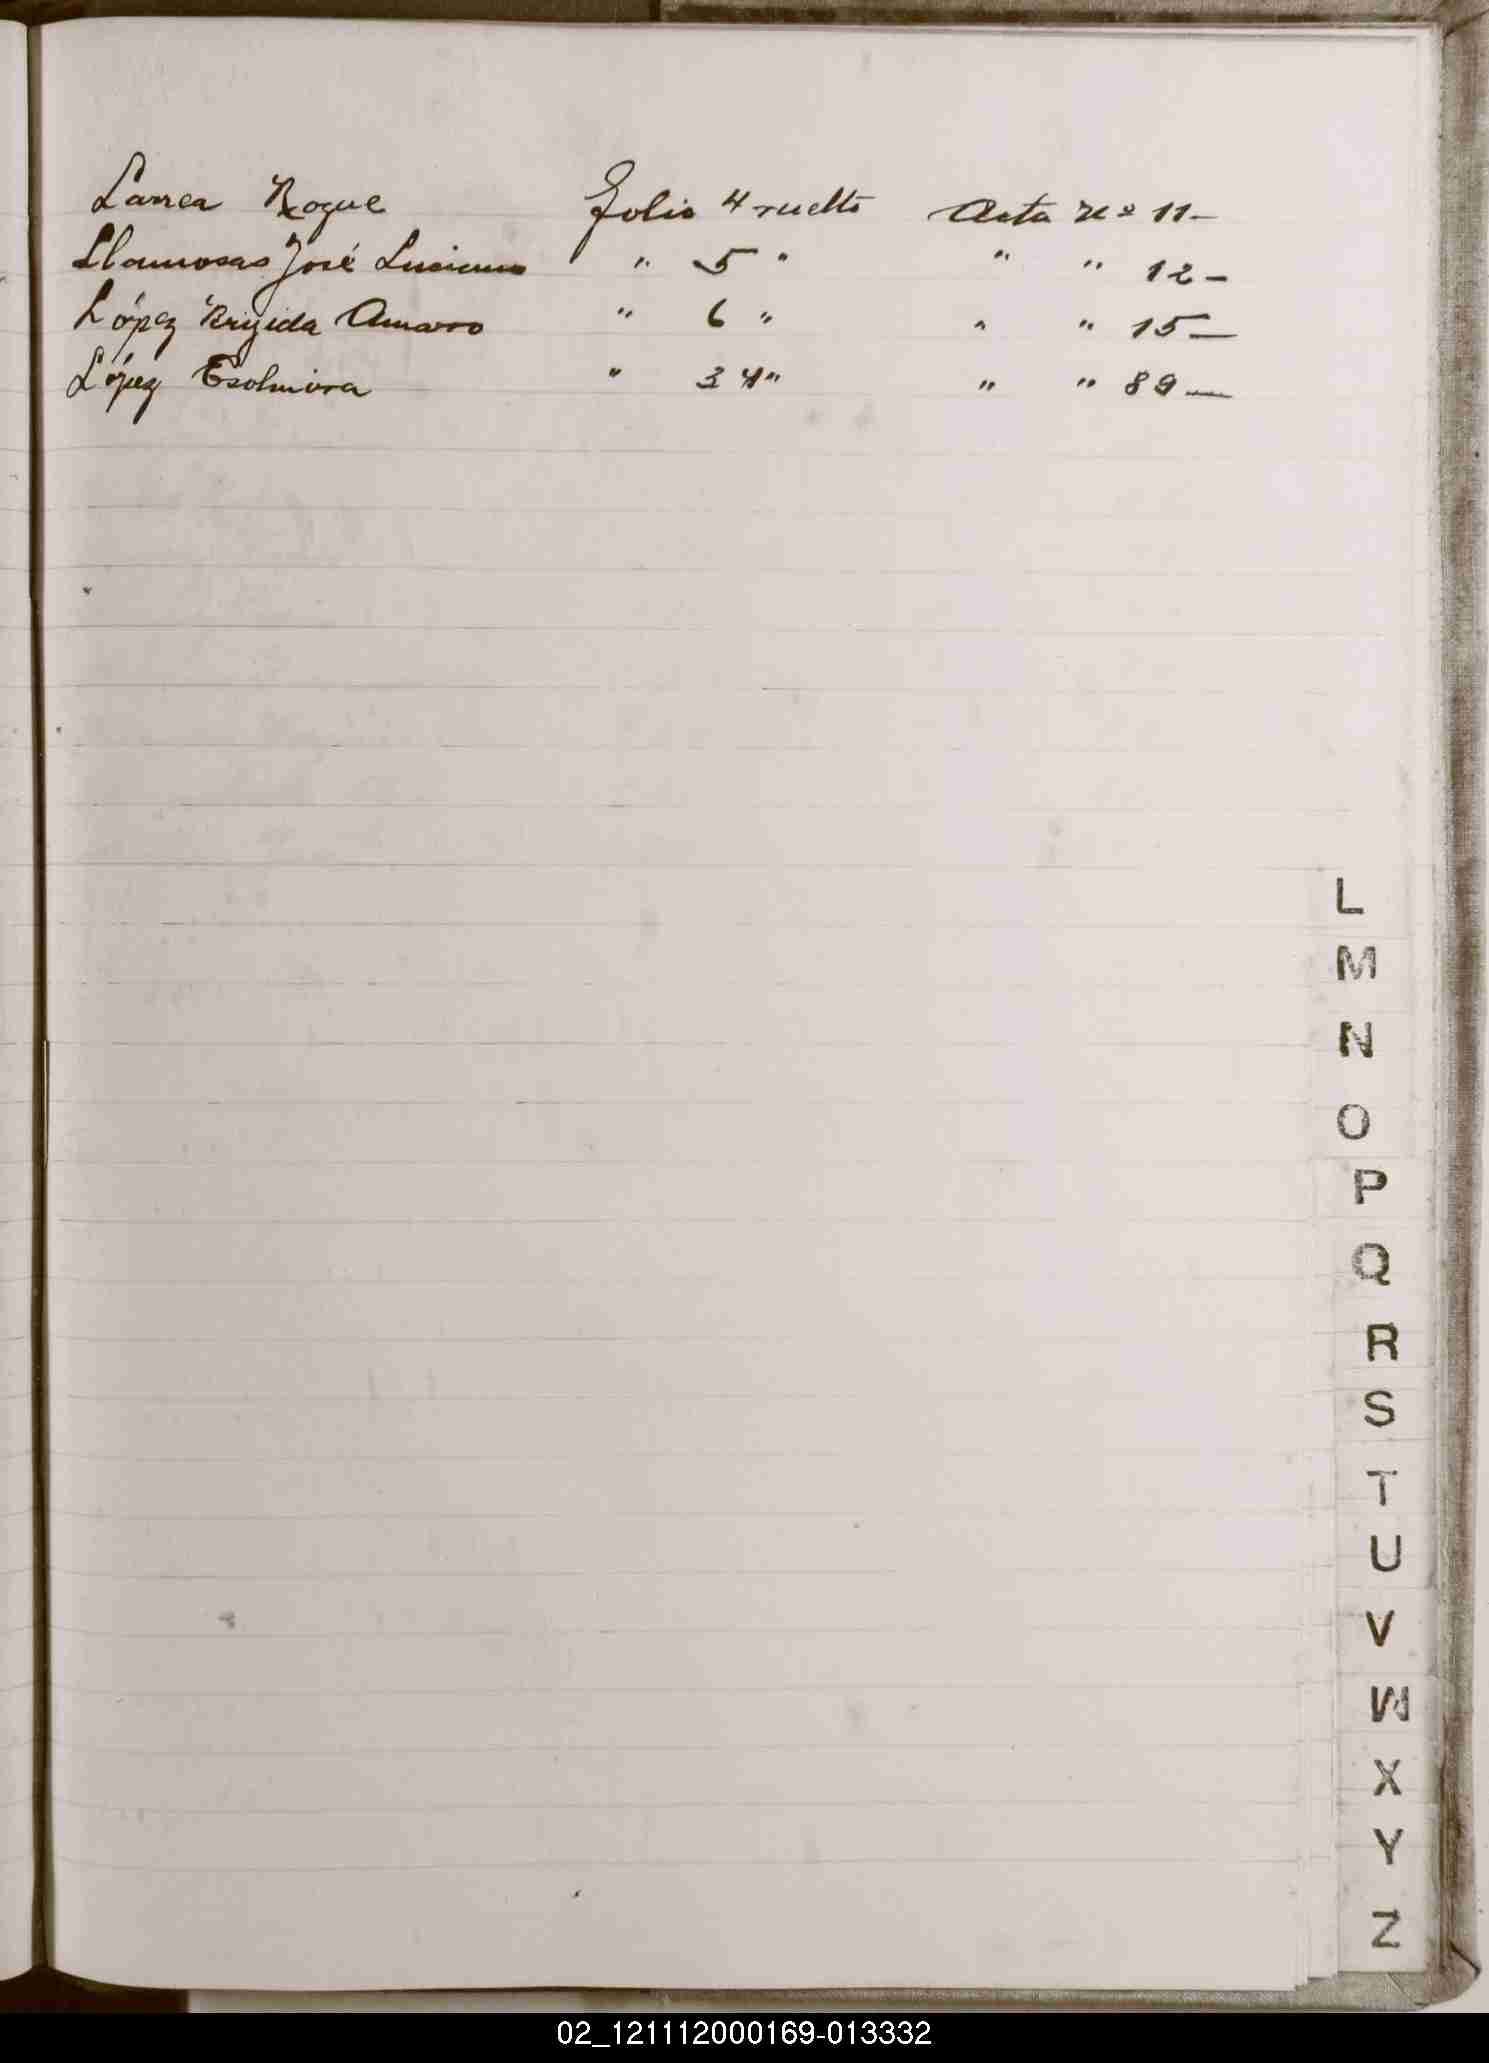 Larrea Roque Folio 4 vuelto Acta Nº 11-
Llamosas José Luciano " 5 " " " 12-
López Brigida Amaro " 6 " " " 15-
López " 34 " " " 89-
L
M
N
O
P
Q
R
S
T
U
V
W
X
Y
Z
02_121112000169-013332